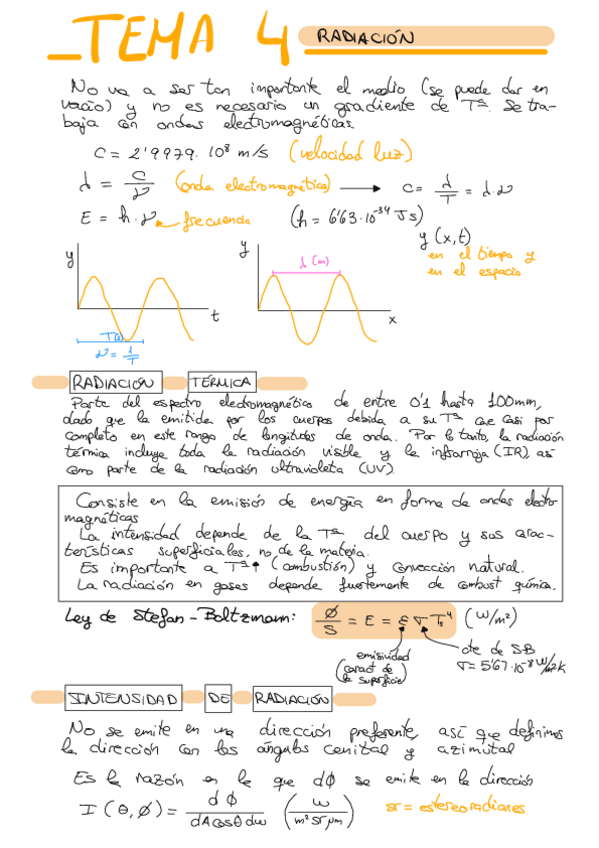 _TEMA 4 RADIACIÓN
No va a ser tan importante el medio (se puede dar en
vacío) y no es necesario un gradiente de Tª. Se tra-
baja con ondas electromagnéticas.
C = 2'9979·10⁸ m/s (velocidad luz)
λ = C/ν (onda electromagnética) → C = λ/T = λ·ν
E = h·ν frecuencia (h = 6'63·10⁻³⁴ J s)
y (x,t)
en el tiempo y
en el espacio
y
t
T(s)
ν = 1/T
y
λ (m)
x
RADIACIÓN TÉRMICA
Parte del espectro electromagnético de entre 0'1 hasta 100mm,
dado que la emitida por los cuerpos debida a su Tª cae casi por
completo en este rango de longitudes de onda. Por lo tanto, la radiación
térmica incluye toda la radiación visible y la infrarroja (IR), así
como parte de la radiación ultravioleta (UV).
Consiste en la emisión de energía en forma de ondas electro
magnéticas
La intensidad depende de la Tª del cuerpo y sus carac-
terísticas superficiales, no de la materia.
Es importante a Tª↑ (combustión) y convección natural.
La radiación en gases depende fuertemente de combust química.
Ley de Stefan-Boltzmann: ø/S = E = ε σ Ts⁴ (W/m²)
emisividad
(caract de
la superficie)
cte de SB
σ = 5'67·10⁻⁸ W/m²k
INTENSIDAD DE RADIACIÓN
No se emite en una dirección preferente, así que definimos
la dirección con los ángulos cenital y azimutal
Es la razón en la que dø se emite en la dirección
I (θ, ø) = dø/dAcosθdω (W/m² sr μm) sr = estereoradianes